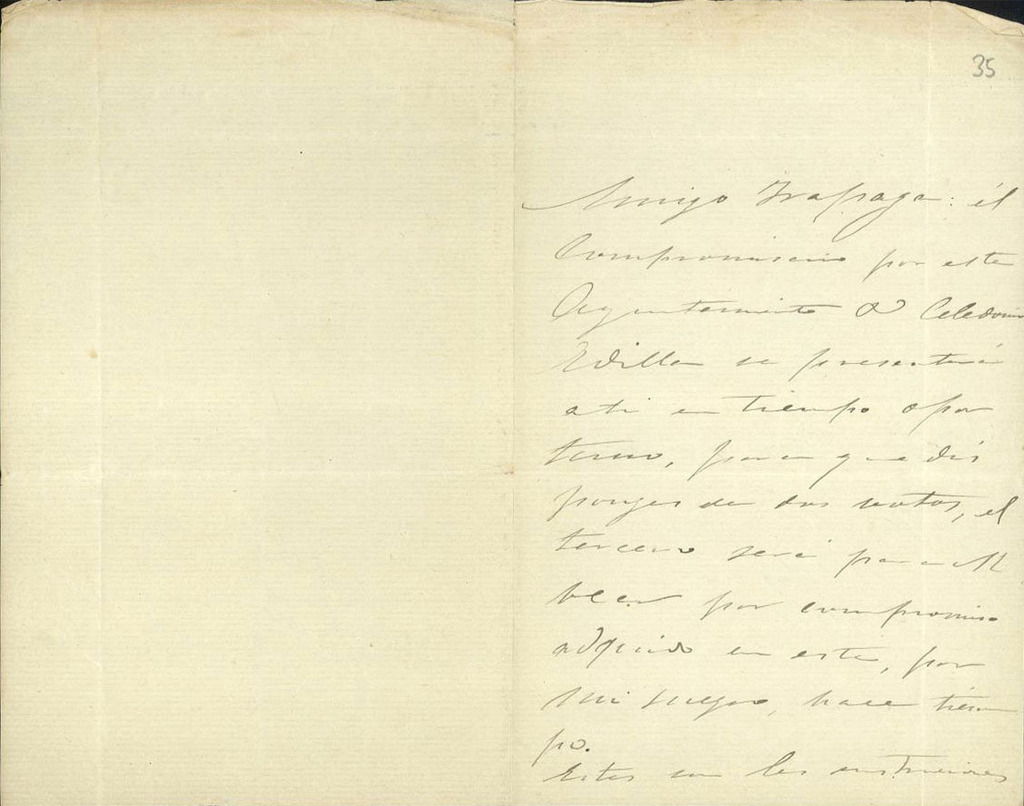 35
Amigo Trapaga: él
Compromisario por este
Ayuntamiento D Celedonio
Edilla se presentará
a ti en tiempo opor
tuno, para que dis
pongas de dos votos, el
tercero será para
por compromiso
adquirido en este, por
mi suegro, hace tiem
po.
Estas son las instruciones